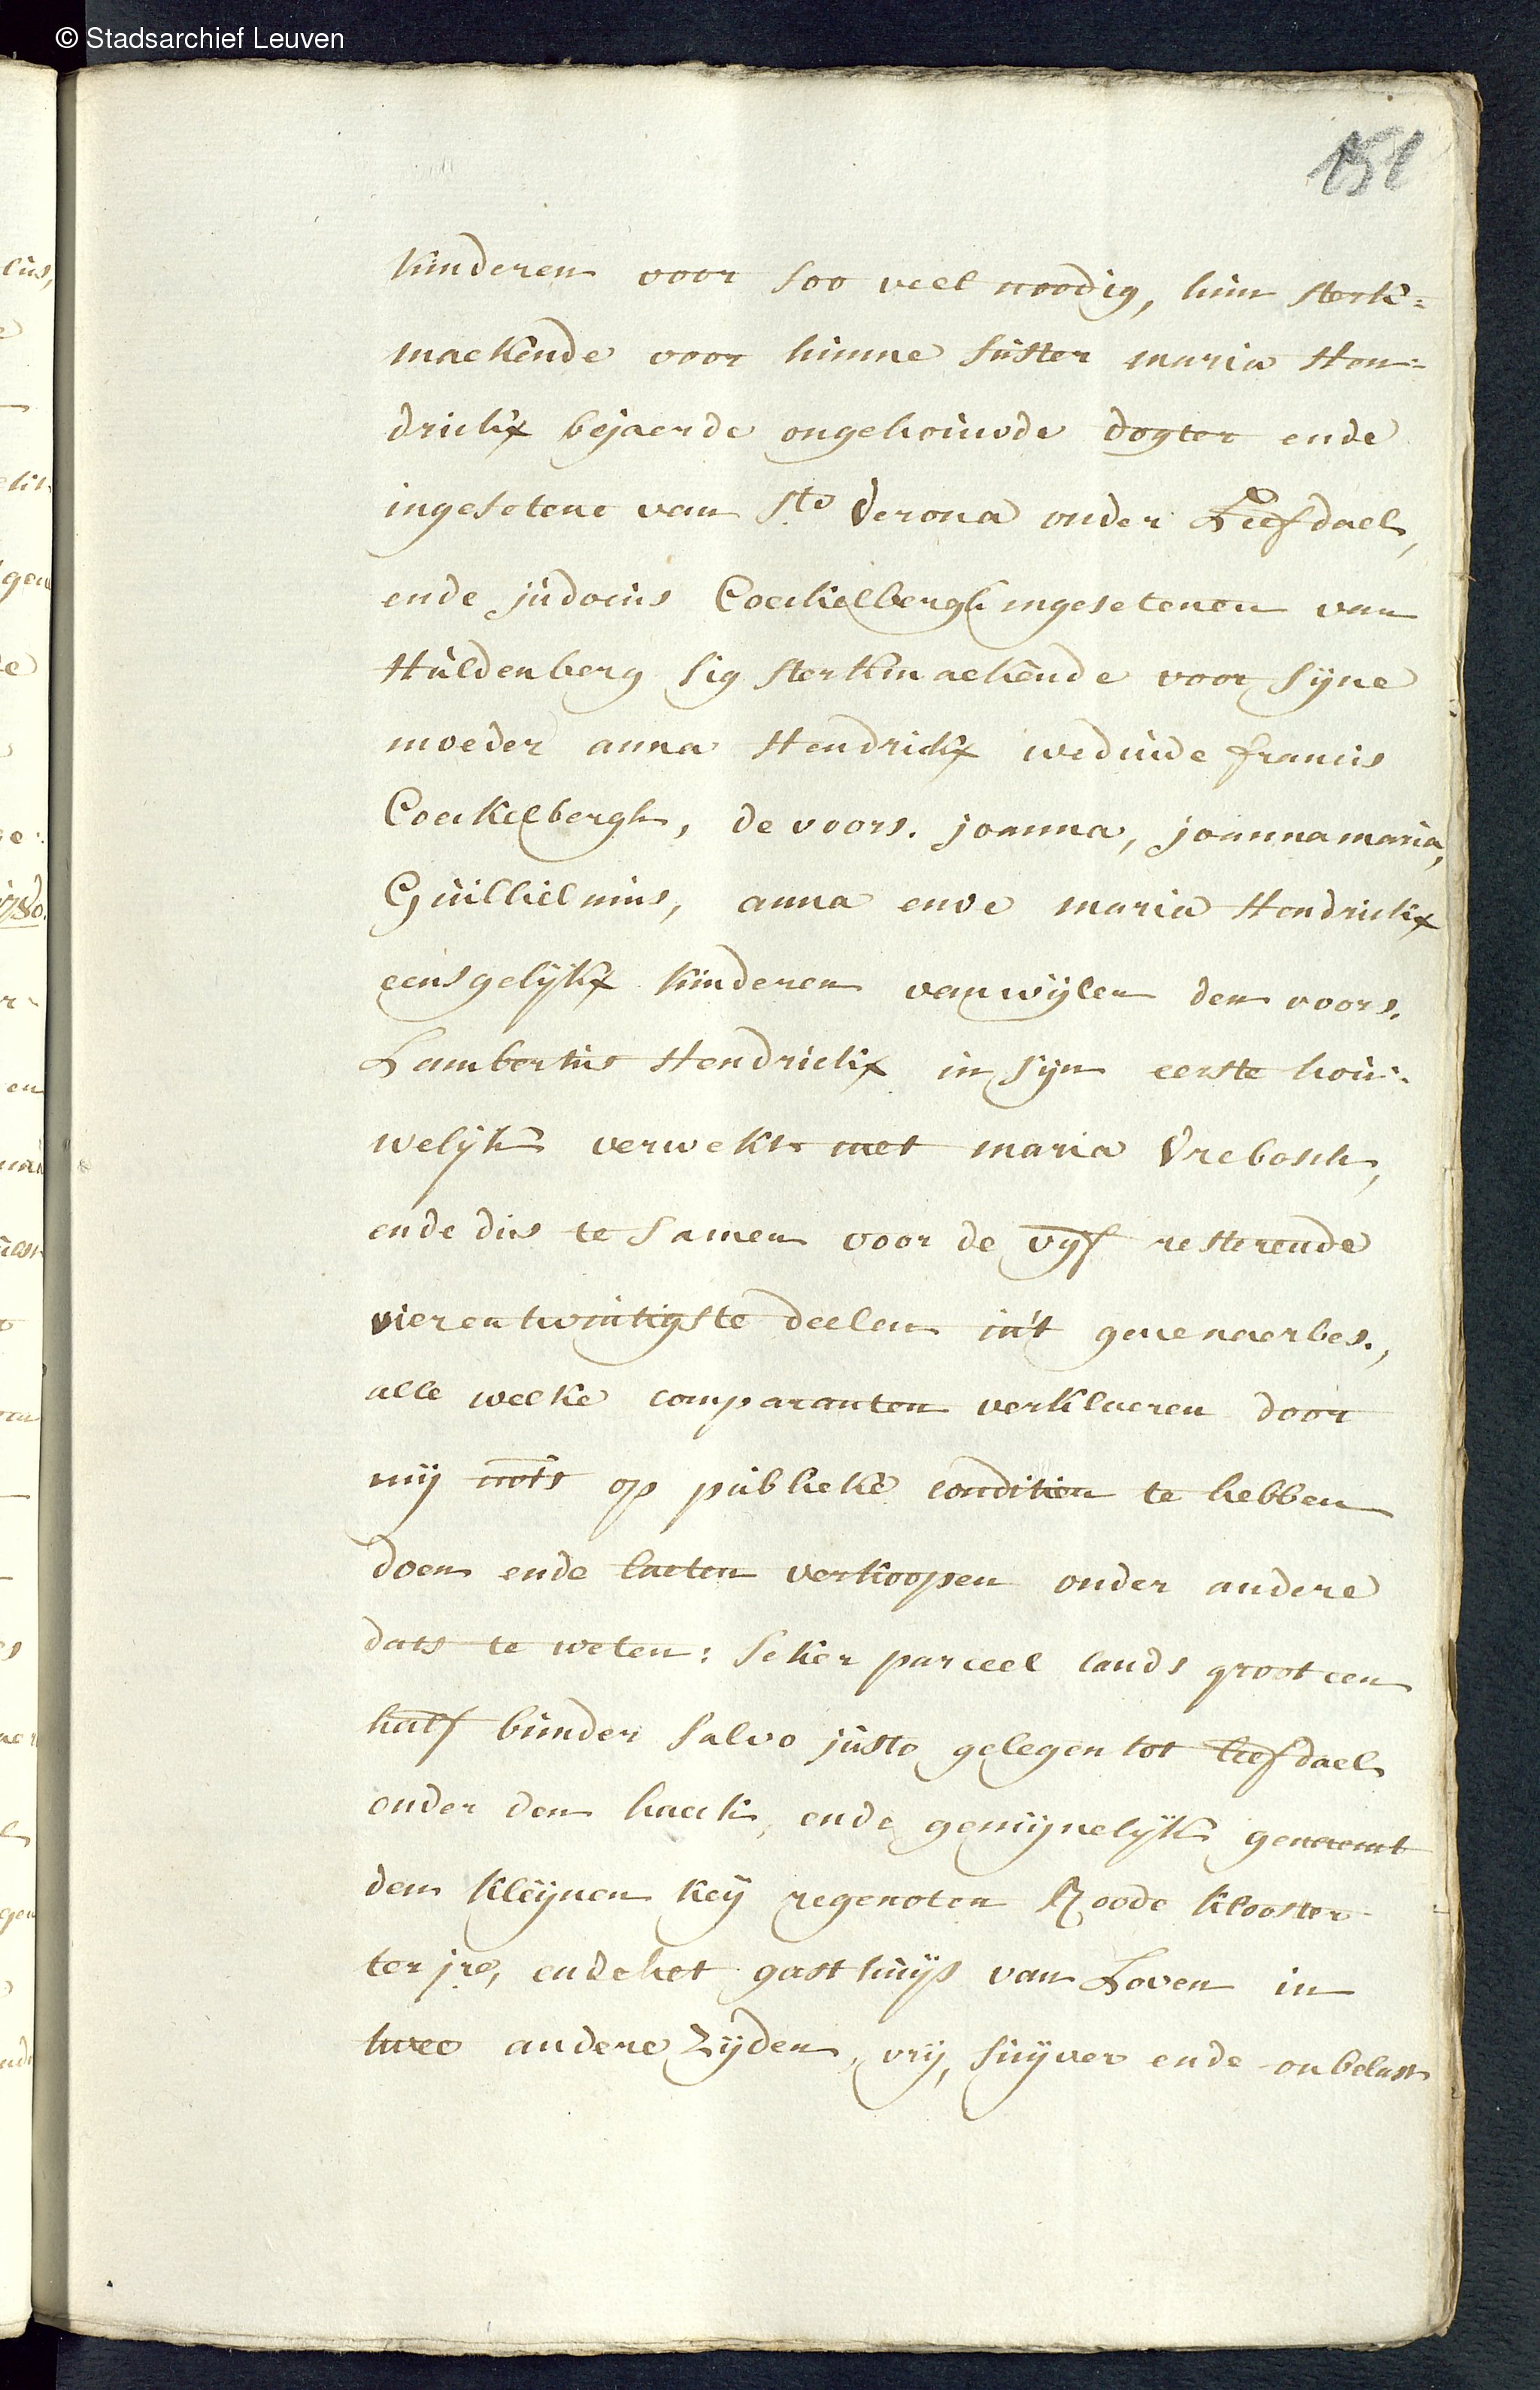 © Stadsarchief Leuven
151
kinderen voor soo veel noodig, hun sterk=
maekende voor hunne suster maria Hen=
drickx bejaerde ongehouwde dogter ende
ingesetene van Ste Verona onder Leefdael,
ende judocus Coeckelbergh ingesetenen van
Huldenberg sig sterkmaekende voor syne
moeder anna Hendrickx weduwe francis
Coeckelbergh, de voors. joanna, joanna maria,
Guillielmus, anna ende maria Hendrickx
eensgelykx kinderen van wylen den voors.
Lambertus Hendrickx in syn eerste hou=
welyk verwekt met maria Vrebosch,
ende dus te samen voor de vyf resterende
vierentwintigste deelen in't geue naerbes.,
alle welke comparanten verklaeren door
my nots op publieke conditien te hebben
doen ende laeten verkoopen onder andere
dats te weten: seker parceel lands groot een
half bunder salvo justo gelegen tot leefdael
onder den haeck, ende gemynelyk genoemt
den kleynen key regenoten Roode klooster
ter jre, ende het gasthuys van Loven in
twee andere zyden, vry, suyver ende onbelast